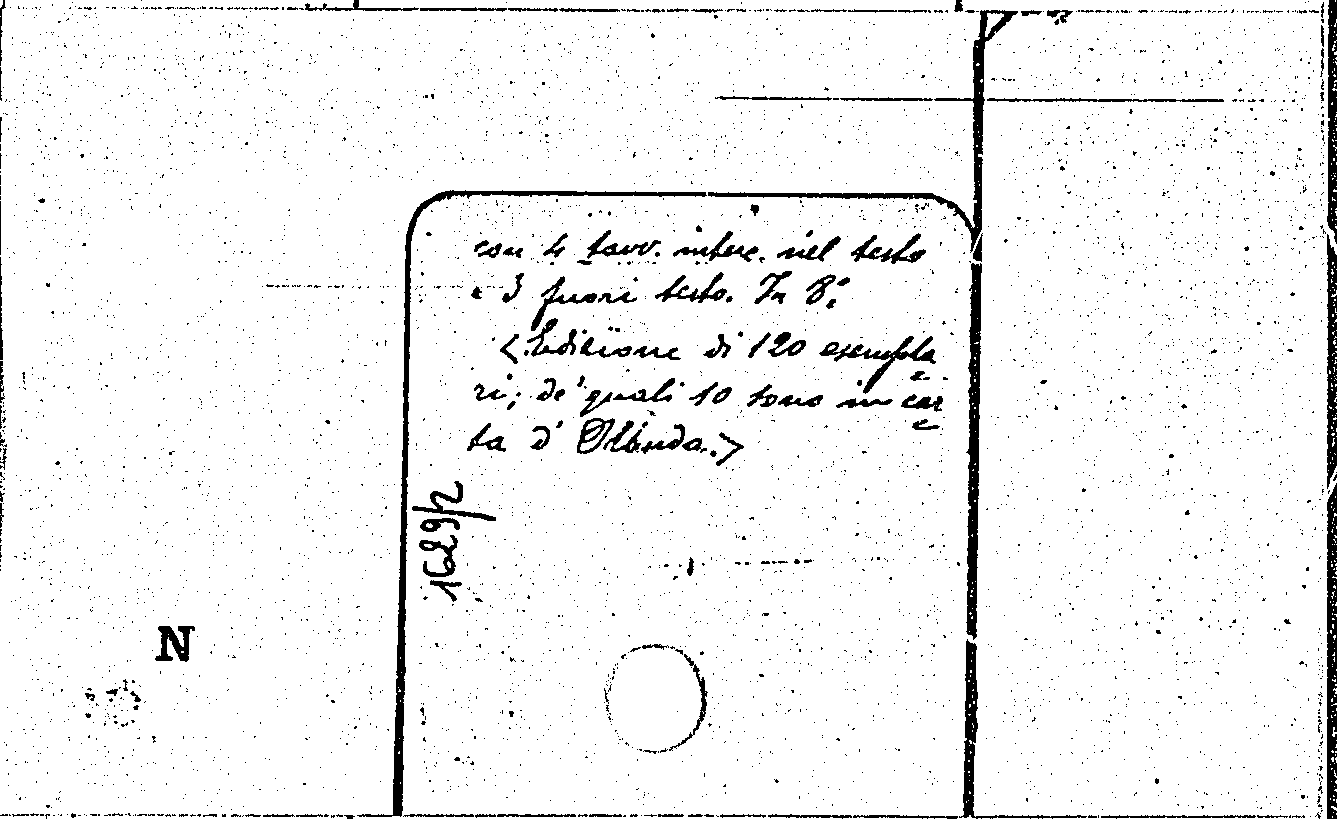 con 4 tavv. interc. nel testo
e 3 fuori testo. In 8.°
<Edizione di 120 esempla
ri; de' quali 10 sono in car
ta d' Olanda.>
1629/2
N